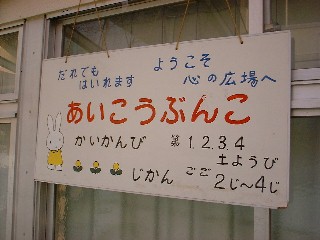 だれでも
はいれます
ようこそ
心の広場へ
あいこうぶんこ
かいかんび 第 1.2.3.4
土ようび
じかん ごご 2じ〜4じ